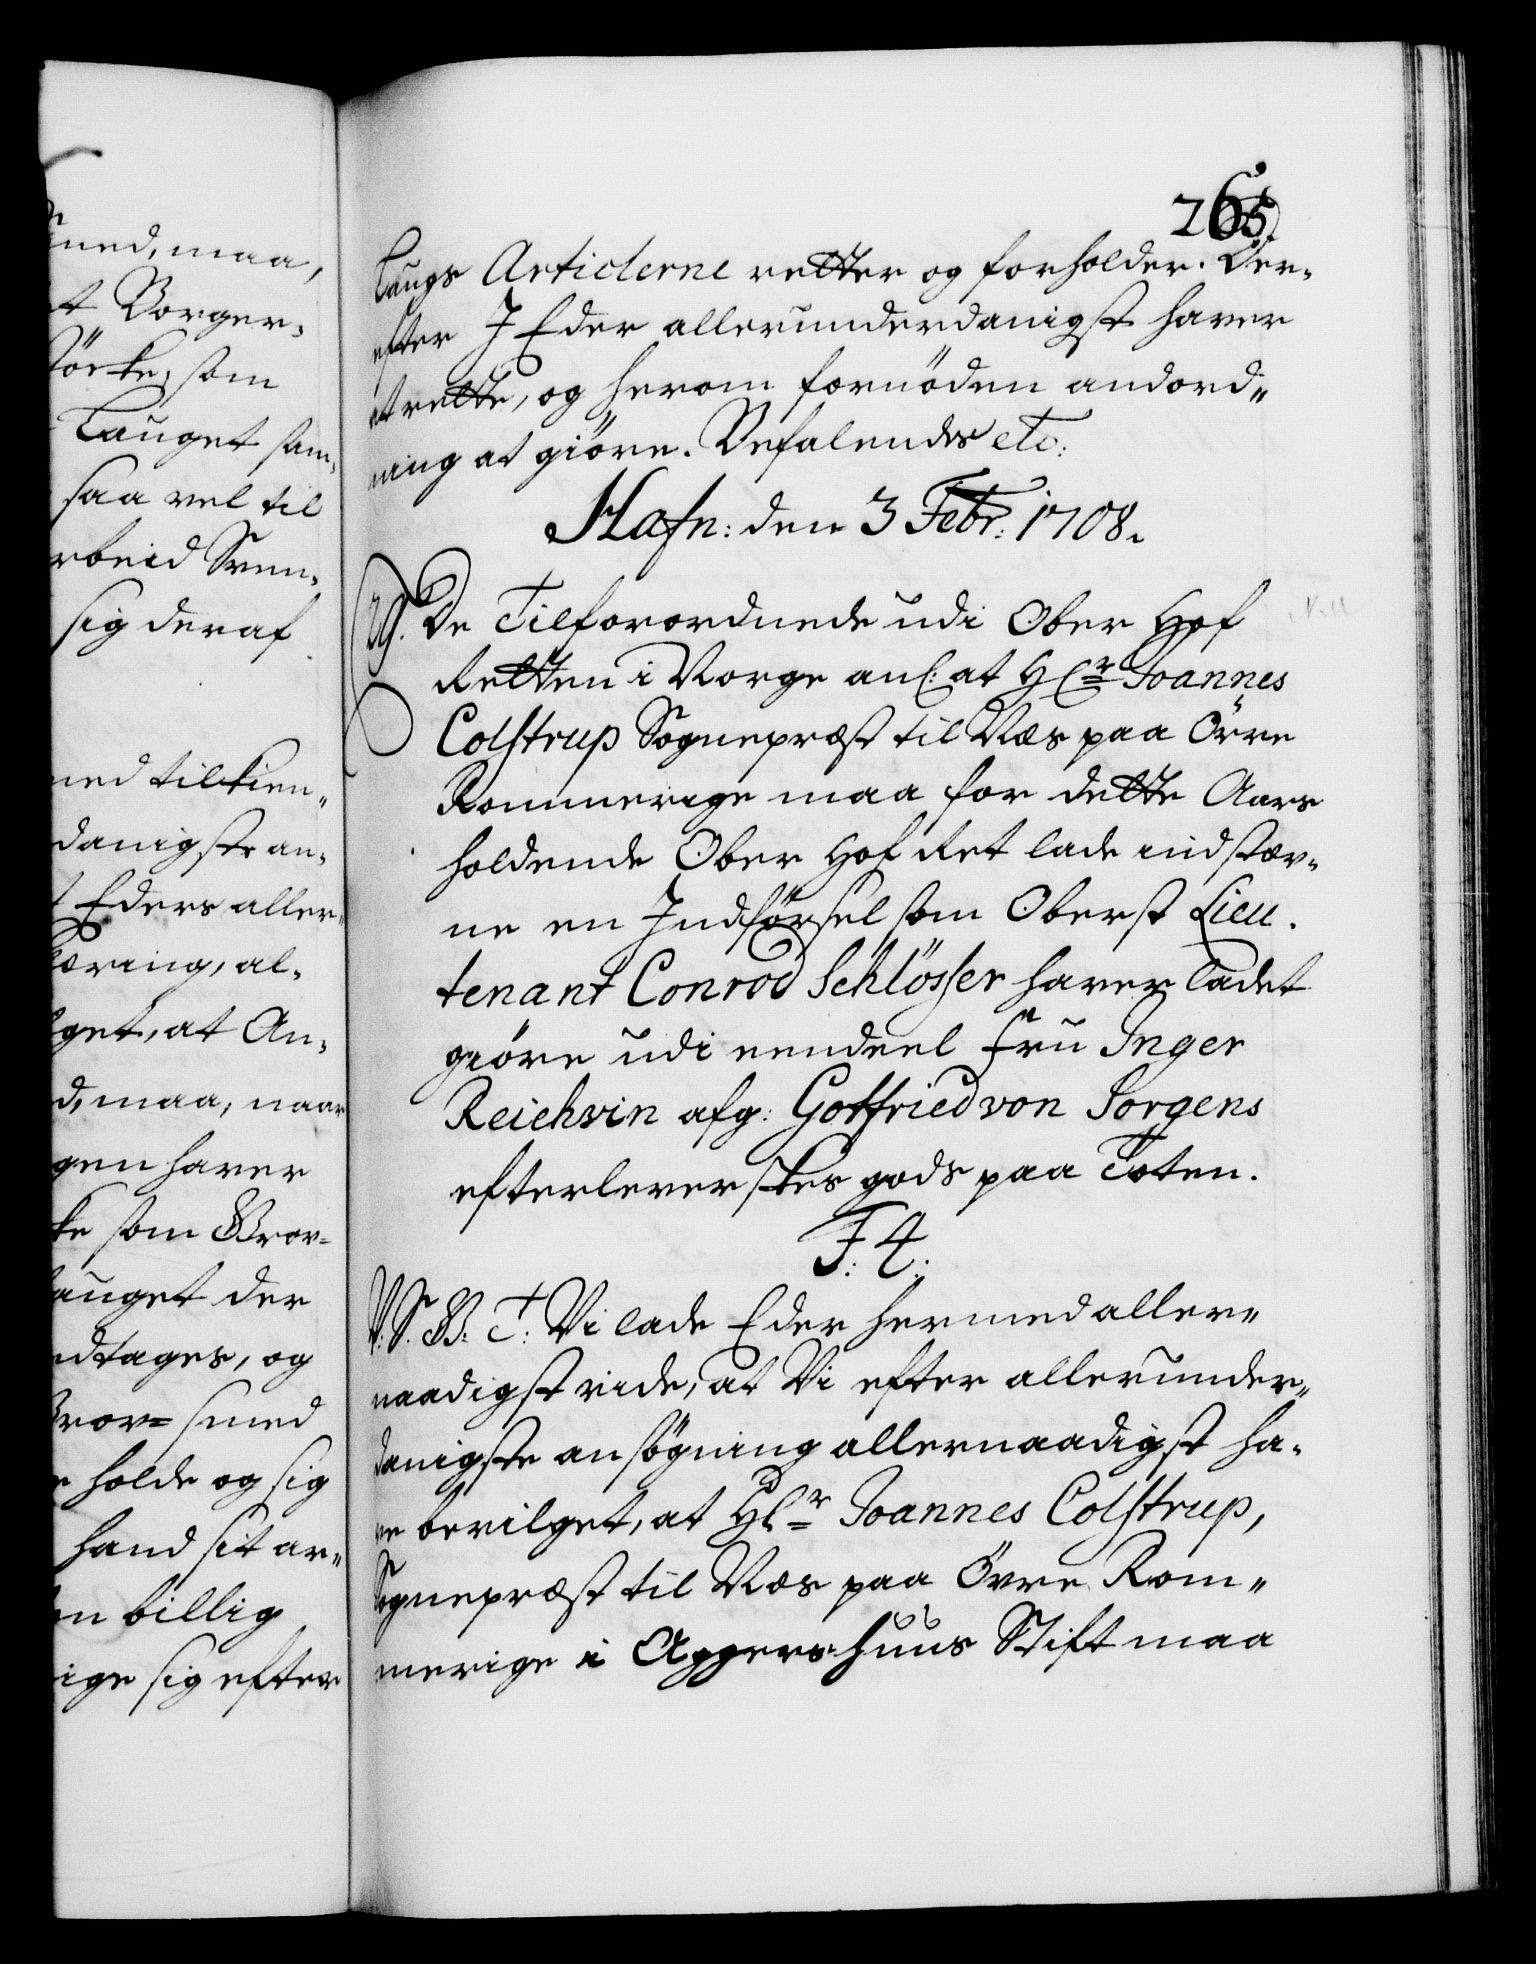 265.
Laugs Articlerne retter og forholder. Der-
efter J Eder allerunderdanigst haver
at rette, og herom fornöden andord-
ning at giöre. Befalendes etc:
Hafn: den 3 Febr: 1708.
29. De Tilforordnede udi Ober Hof
Retten i Norge anl: at Hr Joannes
Colstrup Sognepræst til Næs paa Övre
Rommerige maa for dette Aars
holdende Ober Hof Ret lade indstæv-
ne en Indförsel som Oberst Lieu-
tenant Conrod Schlösser haver ladet
giöre udi eendeel Fru Inger
Reichvin afg: Gottfried von Sorgens
efterleverskes gods paa Toten.
F: 4:
V. S. G: T: Vi lade Eder hermed aller-
naadigst vide, at Vi efter allerunder-
danigste ansögning allernaadigst ha-
ve bevilget, at Hr Joannes Colstrup,
Sognepræst til Næs paa Övre Rom-
merige i Aggershuus Stift maa
ned, maa,
t Borger-
som
Lauget sam-
saa vel til
rbeid Sven-
sig deraf
ned tilkien-
danigste an-
t Eders aller-
læring, al-
get, at An-
d, maa, naar
gen haver
ke som Grov-
auget der
edtages, og
Grov- smed
e holde og sig
hand sit ar-
en billig
ige sig efter